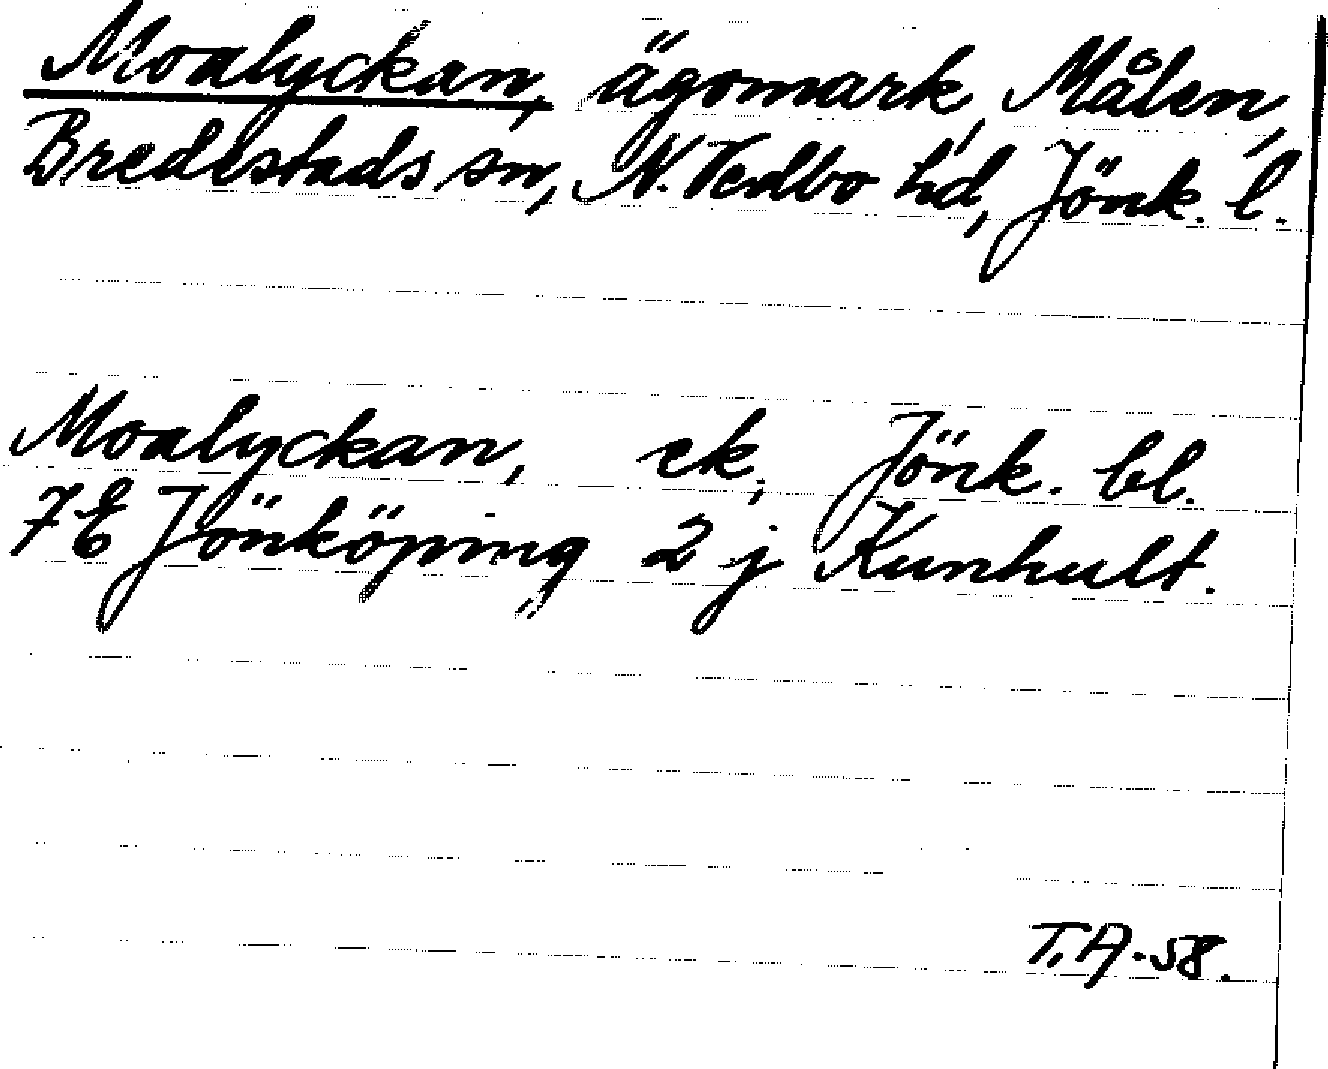 Moalyckan, ägomark, Målen,
Bredestads sn, N. Vedbo hd, Jönk. l.
Moalyckan, ek, Jönk. bl.
7E Jönköping 2 j Kunhult.
T.A-58.